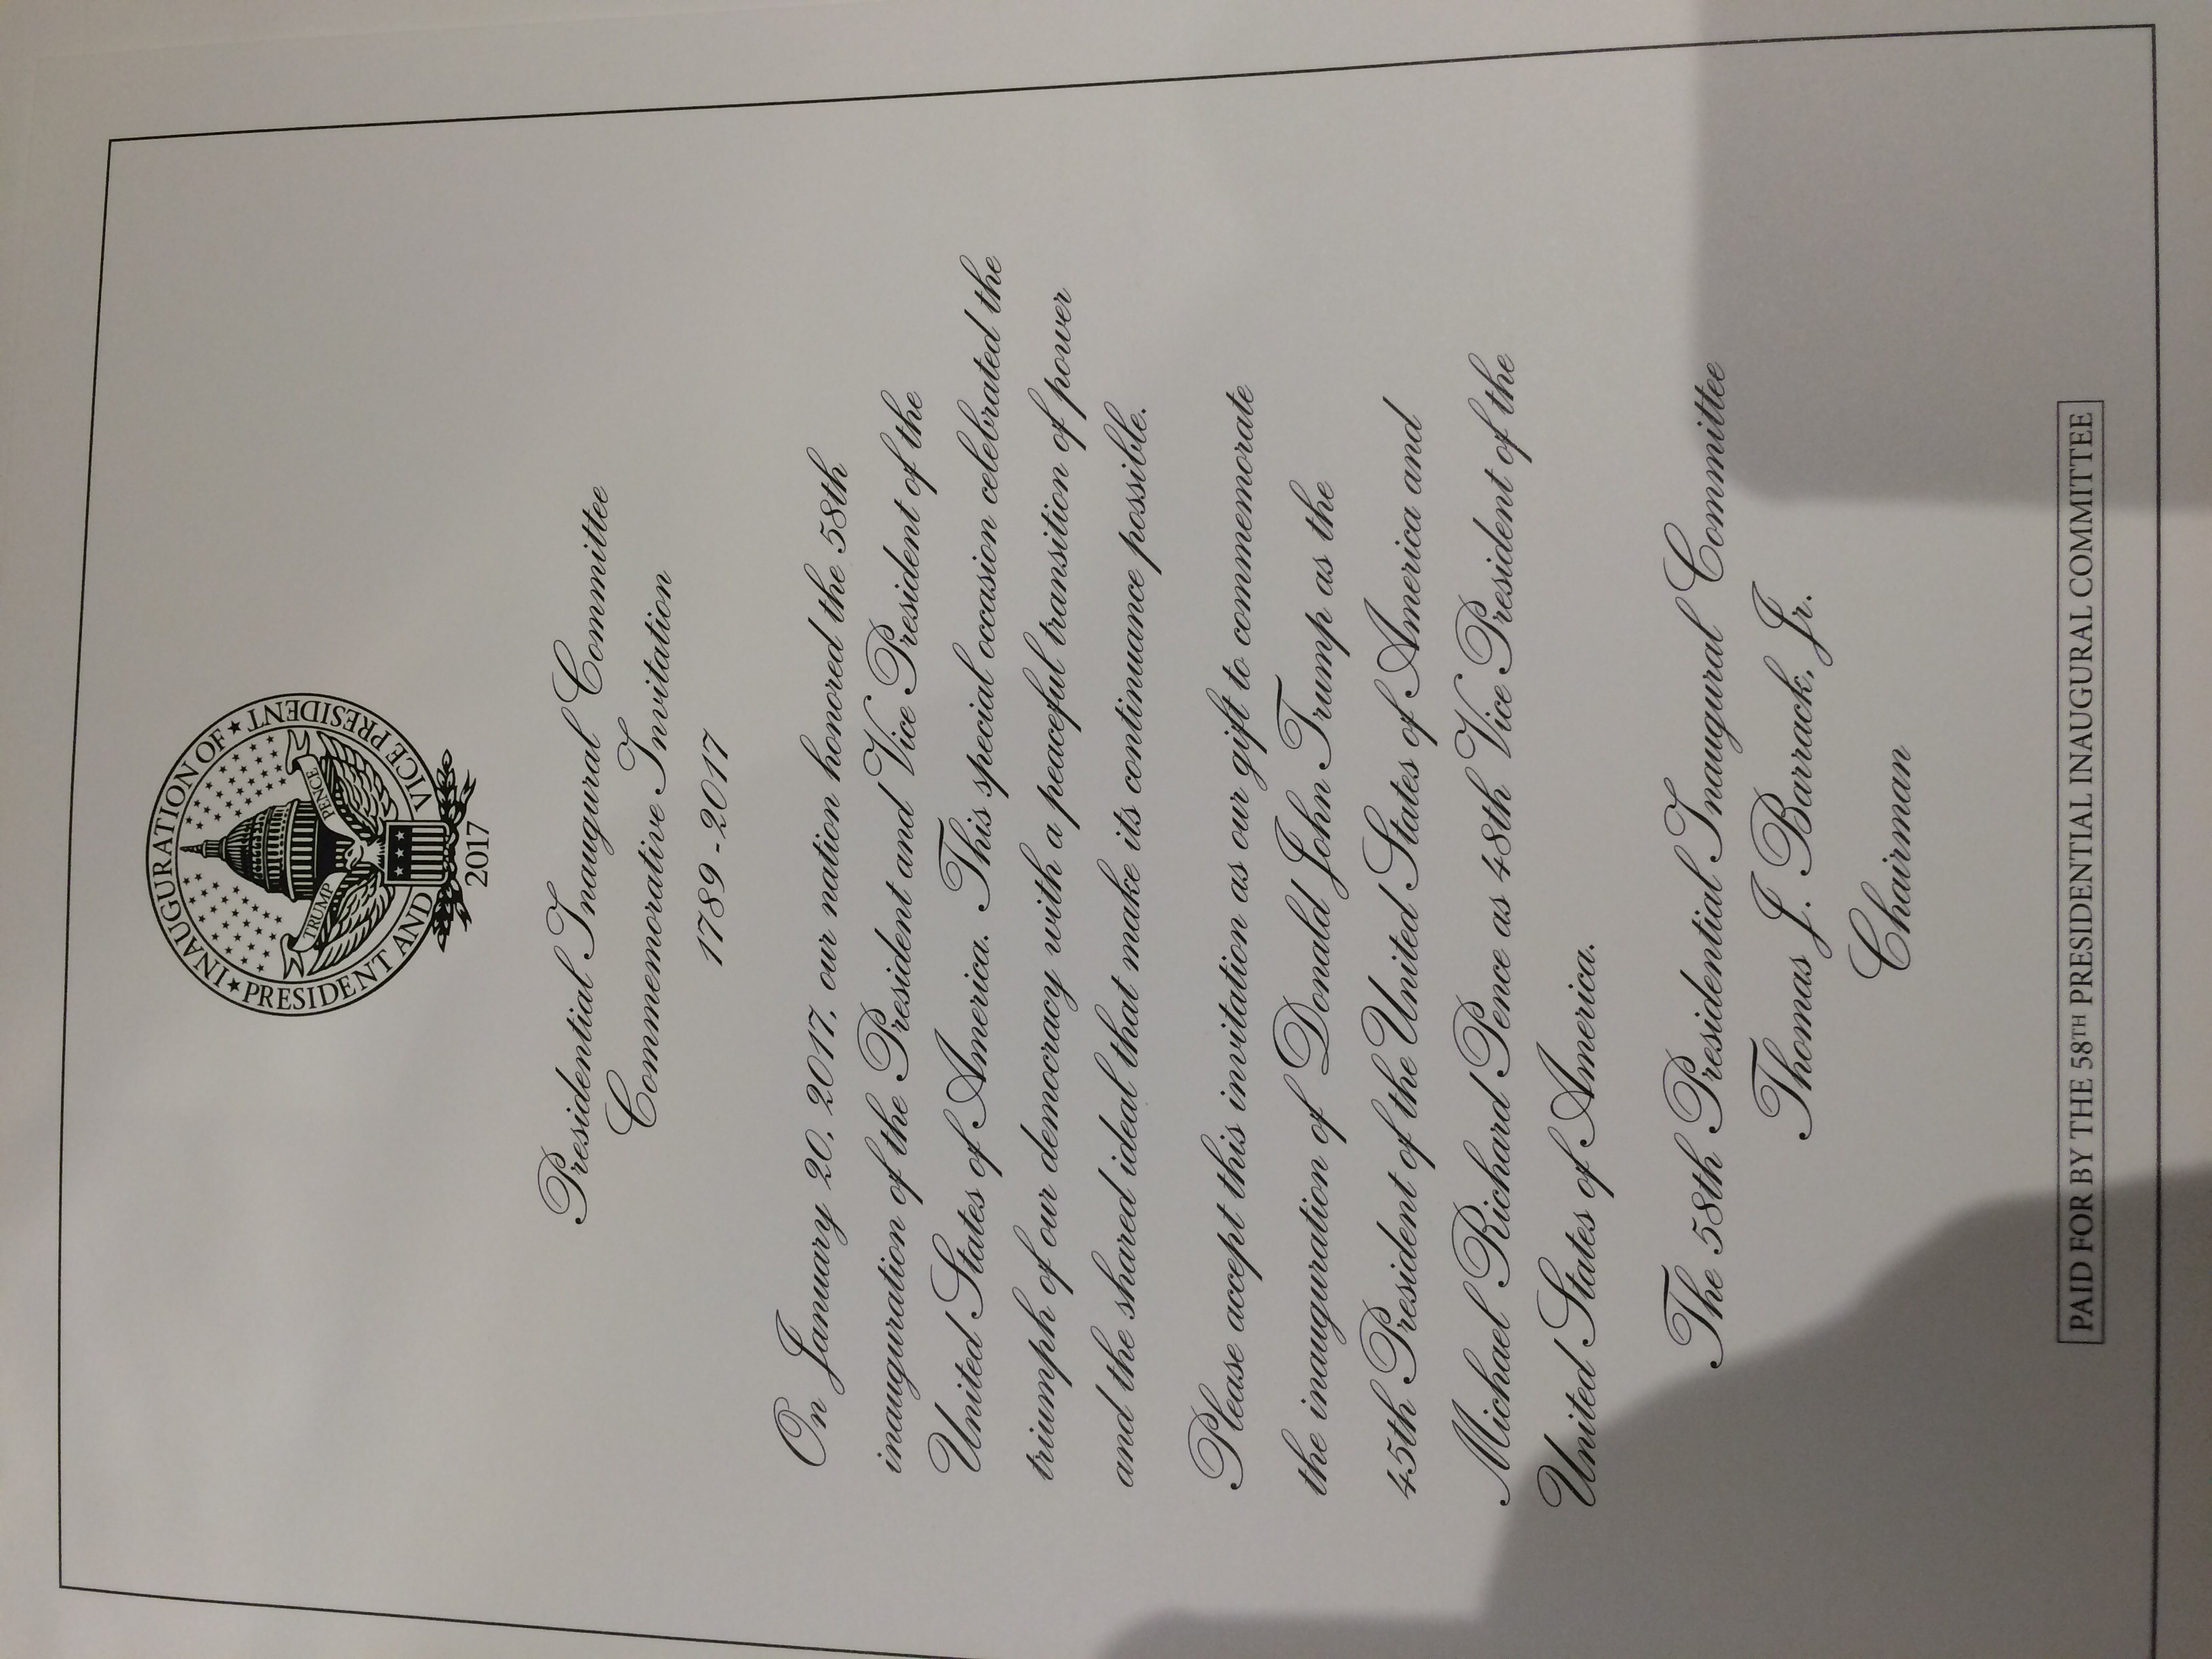 INAUGURATION OF
PRESIDENT AND VICE PRESIDENT
TRUMP
PENCE
2017
Presidential Inaugural Committee
Commemorative Invitation
1789-2017
On January 20, 2017, our nation honored the 58th
inauguration of the President and Vice President of the
United States of America. This special occasion celebrated the
triumph of our democracy with a peaceful transition of power
and the shared ideal that make its continuance possible.
Please accept this invitation as our gift to commemorate
the inauguration of Donald John Trump as the
45th President of the United States of America and
Michael Richard Pence as 48th Vice President of the
United States of America.
The 58th Presidential Inaugural Committee
Thomas J. Barrack, Jr.
Chairman
PAID FOR BY THE 58TH PRESIDENTIAL INAUGURAL COMMITTEE